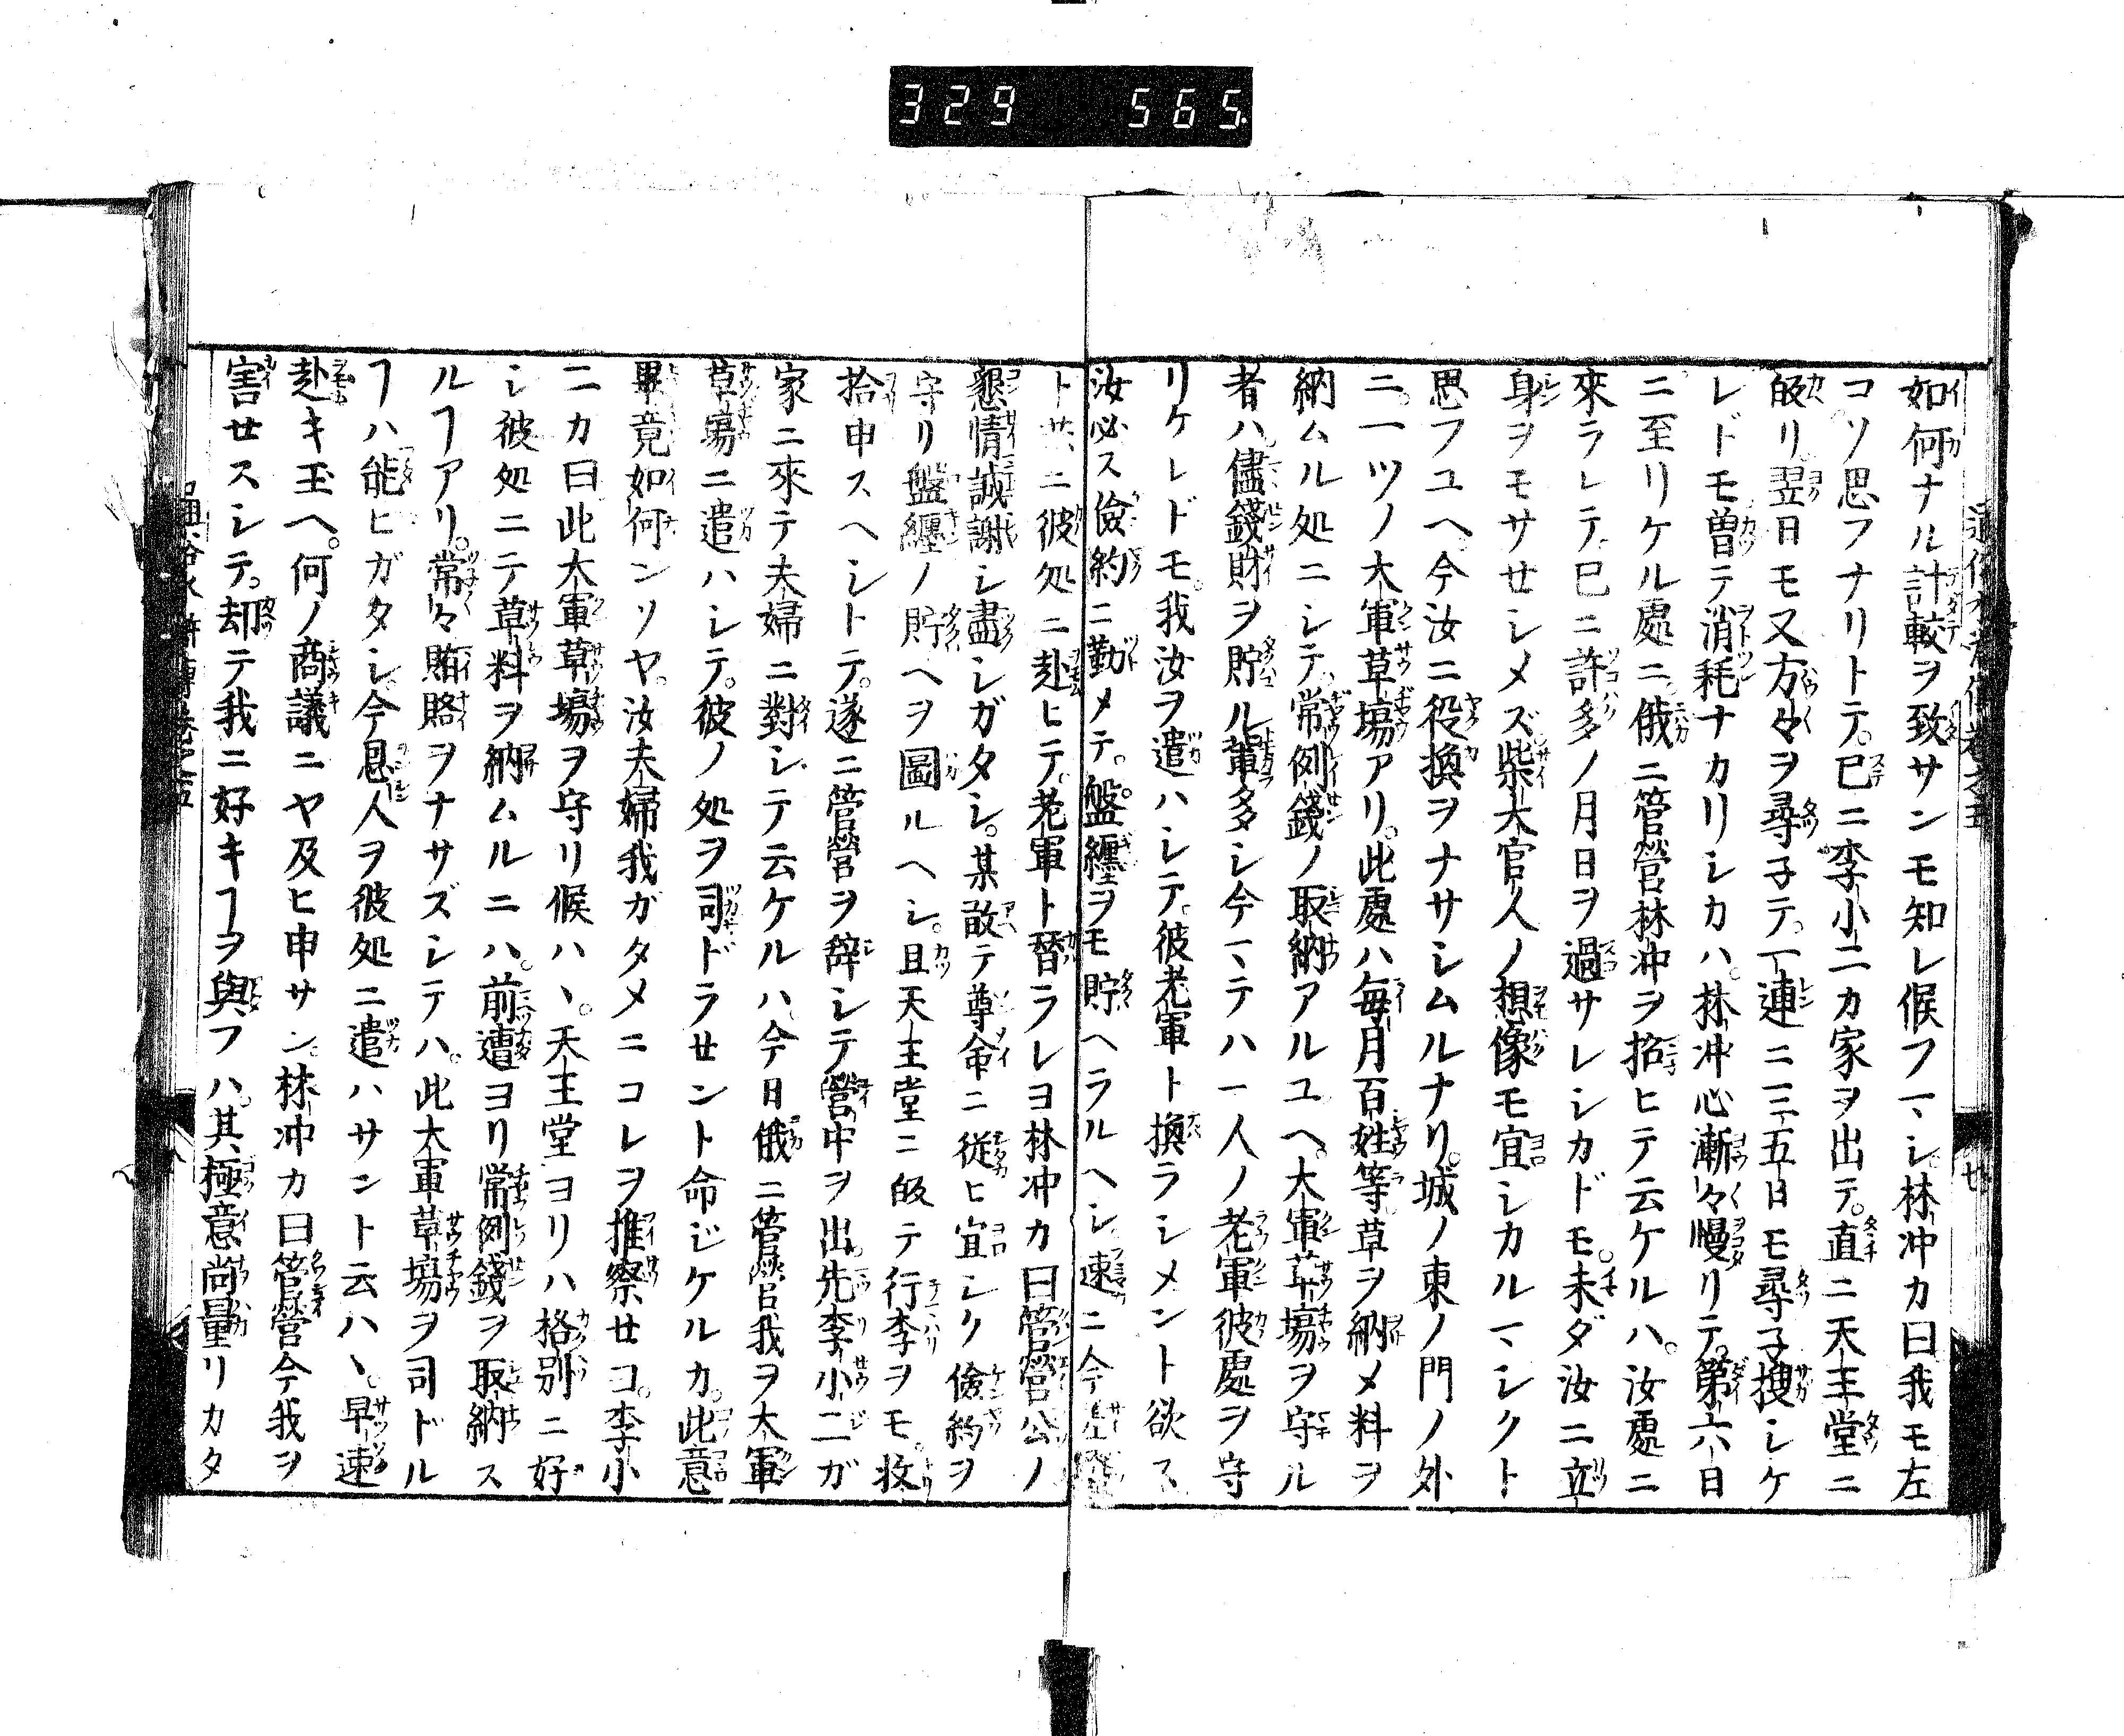 329 565
如何ナル計較ヲ致サンモ知レ候フマシ林冲カ曰我モ左
コソ思フナリトテ。已ニ李小二カ家ヲ出テ。直ニ天王堂ニ
皈リ。翌日モ又方々ヲ尋子テ。一連ニ三五日モ尋子搜シケ
レドモ曽テ消耗ナカリシカハ。林冲心漸々慢リテ。第六日
ニ至リケル處ニ俄ニ管營林冲ヲ招ヒテ云ケルハ。汝處ニ
來ラレテ已ニ許多ノ月日ヲ過サレシカドモ。未ダ汝ニ立
身ヲモサせシメズ柴大官人ノ想像モ宜シカルマシクト
思フユへ。今汝ニ役換ヲナサシムルナリ。城ノ東ノ門ノ外
ニ。一ツノ大軍草塲アリ。此處ハ毎月百姓等草ヲ納メ料ヲ
納ムル処ニシテ。常例錢ノ取納アルユヘ。大軍草塲ヲ守ル
者ハ儘錢財ヲ貯ル輩多シ今マテハ一人ノ老軍彼處ヲ守
リケレドモ。我汝ヲ遣ハシテ。彼老軍ト換ラシメント欲ス
汝必ス儉約ニ勤メテ。盤纏ヲモ貯ヘラルヘシ。速ニ今
ニ彼処ニ赴ヒテ。老軍ト替ラレヨ林冲カ曰管營公ノ
懇情誠謝シ盡シガタシ。某敢テ尊命ニ從ヒ宜シク儉約ヲ
守リ盤纏ノ貯ヘヲ圖ルヘシ。且天王堂ニ皈テ行李ヲモ收
拾申スヘシトテ。遂ニ管營ヲ辞シテ營中ヲ出。先李小二ガ
家ニ來テ夫婦ニ對シテ云ケルハ。今日俄ニ管營我ヲ大軍
草塲ニ遣ハシテ。彼ノ処ヲ司ドラせント命ジケルカ。此意
畢竟如何ンソヤ。汝夫婦我ガタメニコレヲ推察せヨ。李小
二カ曰此大軍草塲ヲ守リ候ハヽ。天王堂ヨリハ格別ニ好
シ彼処ニテ草料ヲ納ムルニハ。前遭ヨリ常例錢ヲ取納ス
ルヿアリ。常々賄賂ヲナサズシテハ。此大軍草塲ヲ司ドル
ヿハ能ヒガタシ。今恩人ヲ彼処ニ遣ハサント云ハヽ。早速
赴キ玉ヘ。何ノ商議ニヤ及ヒ申サン。林冲カ曰管營今我ヲ
害せスシテ。却テ我ニ好キヿヲ與フハ。其極意尚量リカタ
通俗水滸傳巻之五